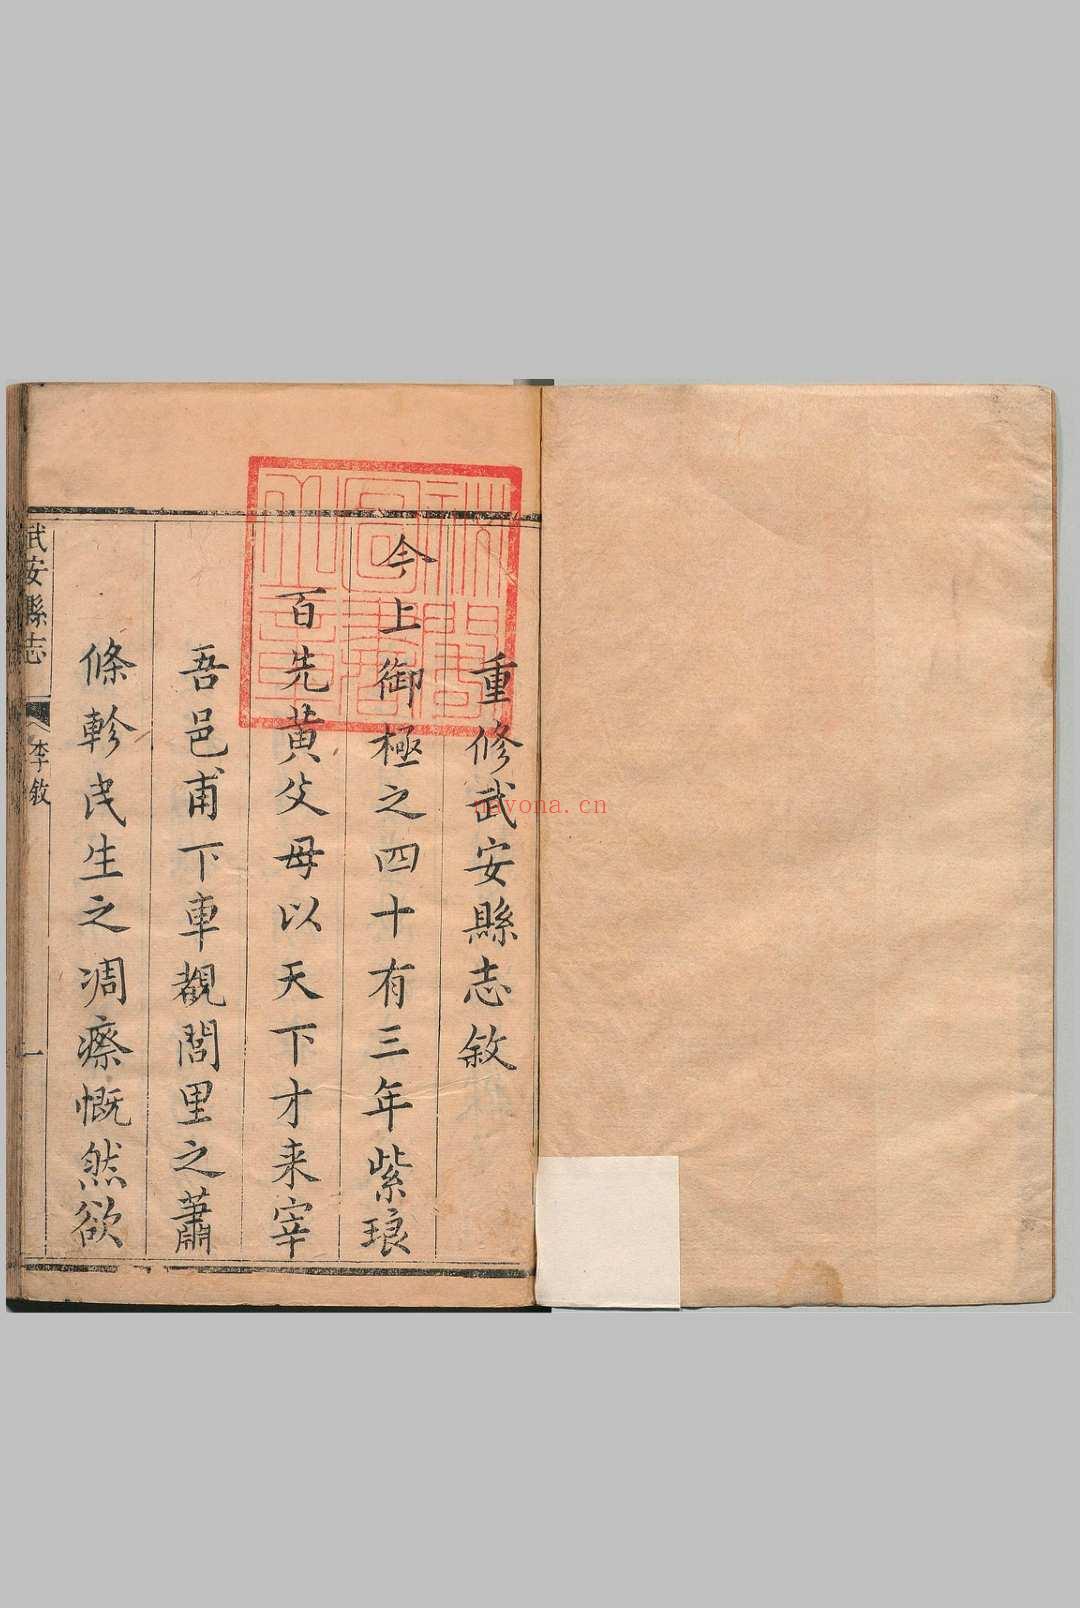 重修武安縣志敘
今上御極之四十有三年紫琅
百先黄父母以天下才来宰
吾邑甫下車覩閭里之蕭
條軫民生之凋瘵慨然欲
武安縣志
李敘
一